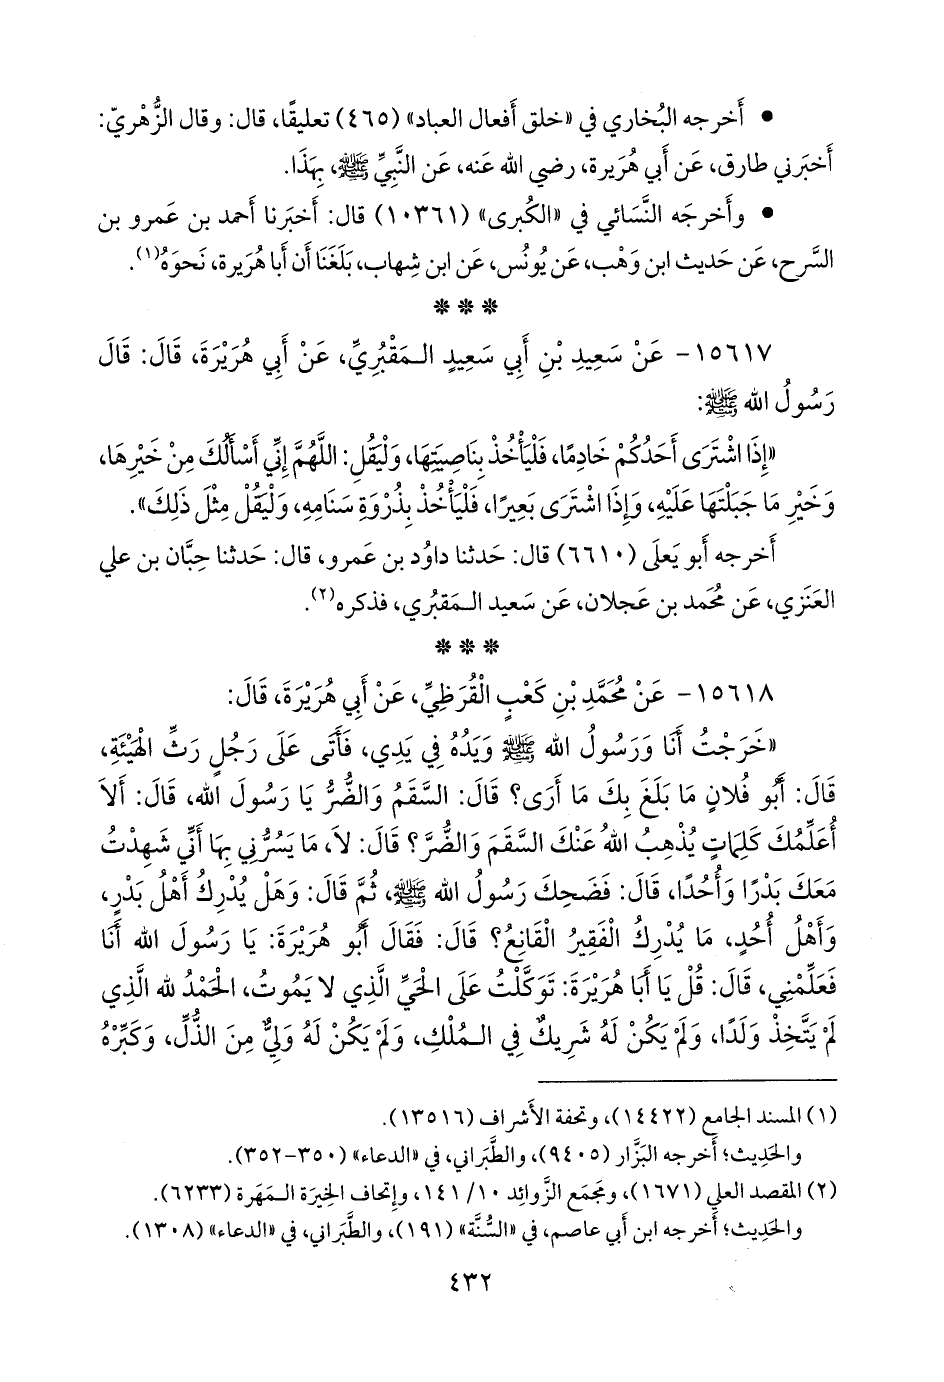 • أَخرجه البُخاري في «خلق أَفعال العباد» (٤٦٥) تعليقًا، قال: وقال الزُّهْريّ:
أَخبَرني طارق، عَن أَبي هُرَيرة، رضي الله عَنه، عَن النَّبيِّ ﷺ، بِهَذَا.
• وأَخرجَه النَّسَائي في «الكُبرى» (١٠٣٦١) قال: أَخبَرنا أَحمد بن عَمرو بن
السَّرح، عَن حَديث ابن وَهْب، عَن يُونُس، عَن ابن شِهاب، بَلَغَنَا أَن أَبا هُرَيرة، نَحوَهُ(١).
* * *
١٥٦١٧- عَنْ سَعِيدِ بْنِ أَبِي سَعِيدٍ الـمَقْبُرِيِّ، عَنْ أَبِي هُرَيْرَةَ، قَالَ: قَالَ
رَسُولُ الله ﷺ:
«إِذَا اشْتَرَى أَحَدُكُمْ خَادِمًا، فَلْيَأْخُذْ بِنَاصِيَتِهَا، وَلْيَقُلِ: اللَّهُمَّ إِنِّي أَسْأَلُكَ مِنْ خَيْرِهَا،
وَخَيْرِ مَا جَبَلْتَهَا عَلَيْهِ، وَإِذَا اشْتَرَى بَعِيرًا، فَلْيَأْخُذْ بِذُرْوَةِ سَنَامِهِ، وَلْيَقُلْ مِثْلَ ذَلِكَ».
أَخرجه أَبو يَعلَى (٦٦١٠) قال: حَدثنا داوُد بن عَمرو، قال: حَدثنا حِبَّان بن علي
العَنَزي، عَن مُحَمد بن عَجلان، عَن سَعيد الـمَقبُري، فذكره(٢).
* * *
١٥٦١٨- عَنْ مُحَمَّدِ بْنِ كَعْبٍ الْقُرَظِيِّ، عَنْ أَبِي هُرَيْرَةَ، قَالَ:
«خَرَجْتُ أَنَا وَرَسُولُ الله ﷺ وَيَدُهُ فِي يَدِي، فَأَتَى عَلَى رَجُلٍ رَثِّ الْهَيْئَةِ،
قَالَ: أَبُو فُلانٍ مَا بَلَغَ بِكَ مَا أَرَى؟ قَالَ: السَّقَمُ وَالضُّرُّ يَا رَسُولَ الله، قَالَ: أَلاَ
أُعَلِّمُكَ كَلِمَاتٍ يُذْهِبُ اللهُ عَنْكَ السَّقَمَ وَالضُّرَّ؟ قَالَ: لاَ، مَا يَسُرُّنِي بِهَا أَنِّي شَهِدْتُ
مَعَكَ بَدْرًا وَأُحُدًا، قَالَ: فَضَحِكَ رَسُولُ الله ﷺ، ثُمَّ قَالَ: وَهَلْ يُدْرِكُ أَهْلُ بَدْرٍ،
وَأَهْلُ أُحُدٍ، مَا يُدْرِكُ الْفَقِيرُ الْقَانِعُ؟ قَالَ: فَقَالَ أَبُو هُرَيْرَةَ: يَا رَسُولَ الله أَنَا
فَعَلِّمْنِي، قَالَ: قُلْ يَا أَبَا هُرَيْرَةَ: تَوَكَّلْتُ عَلَى الْحَيِّ الَّذِي لا يَمُوتُ، الْحَمْدُ لله الَّذِي
لَمْ يَتَّخِذْ وَلَدًا، وَلَمْ يَكُنْ لَهُ شَرِيكٌ فِي الـمُلْكِ، وَلَمْ يَكُنْ لَهُ وَلِيٌّ مِنَ الذُّلِّ، وَكَبِّرْهُ
(١) المسند الجامع (١٤٤٢٢)، وتحفة الأَشراف (١٣٥١٦).
والحَدِيث؛ أَخرجه البَزَّار (٩٤٠٥)، والطَّبَراني، في «الدعاء» (٣٥٠-٣٥٢).
(٢) المقصد العلي (١٦٧١)، ومَجمَع الزَّوائِد ١٠/ ١٤١، وإتحاف الخِيرَة الـمَهَرة (٦٢٣٣).
والحَدِيث؛ أَخرجه ابن أَبي عاصم، في «السُّنَّة» (١٩١)، والطَّبَراني، في «الدعاء» (١٣٠٨).
٤٣٢